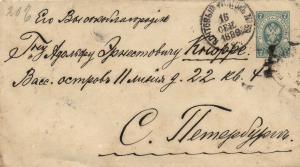 Его Высокоблагородию
Гну Артуру Эрнестовичу Кнорре
Вас. островъ 11 линия д. 22 кв. 4
С. Петербургъ
ПОЧТОВЫЙ
16
СЕН.
7